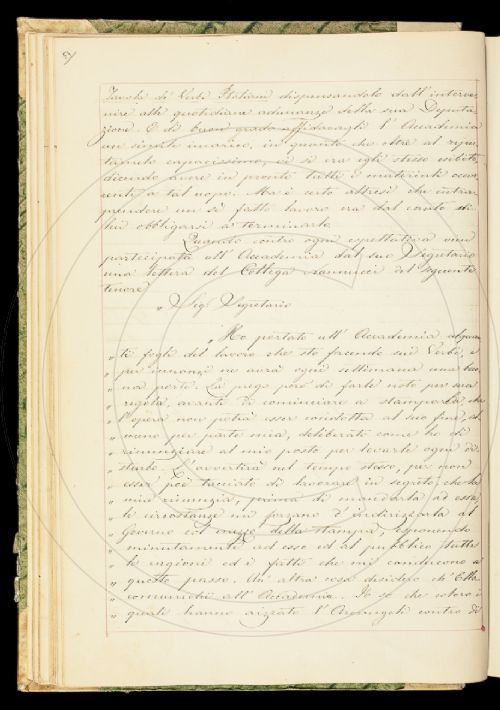 Tavole di Verbi Italiani dispensandolo dall'interve
nire alle quotidiane adunanze della sua Deputa
zione. E di buon grado affidavagli l'Accademia
un simile incarico, in quanto che oltre al repu
tarnelo capacissimo, ci si era egli stesso esibito
dicendo avere in pronto tutti i materiali occor
renti a tal uopo. Ma è certo altresì che intra
prendere un sì fatto lavoro era dal canto
lui obbligarsi a terminarlo.
Quando contro ogni espettativa vien
partecipata all'Accademia dal suo Segretario
una lettera del Collega Nannucci del seguente
tenore
„ Sig. Segretario
„ Ho portato all'Accademia alquan
„ ti fogli del lavoro che sto facendo sui Verbi, e
„ per innanzi ne avrà ogni settimana una buo
„ na parte. La prego però di farle noto per sua
„ regola, avanti di cominciare a stamparla che
„ l'opera non potrà esser condotta al suo fine, al
„ meno per parte mia, deliberato come ho di
„ rinunziare al mio posto per levarle ogni di
„ sturbo. L'avvertirà nel tempo stesso, per non
„ esser poi tacciato di lavorare in segreto, che la
„ mia rinunzia, prima di mandarla ad essa,
„ le circostanze mi forzano d'indirizzarla al
„ Governo col mezzo della stampa, esponendo
„ minutamente ad esso ed al pubblico tutte
„ le ragioni ed i fatti che mi conducono a
„ questo passo. Un'altra cosa desidero ch'Ella
„ comunichi all'Accademia. Io so che coloro i
„ quali hanno aizzato l'Arcangeli contro di